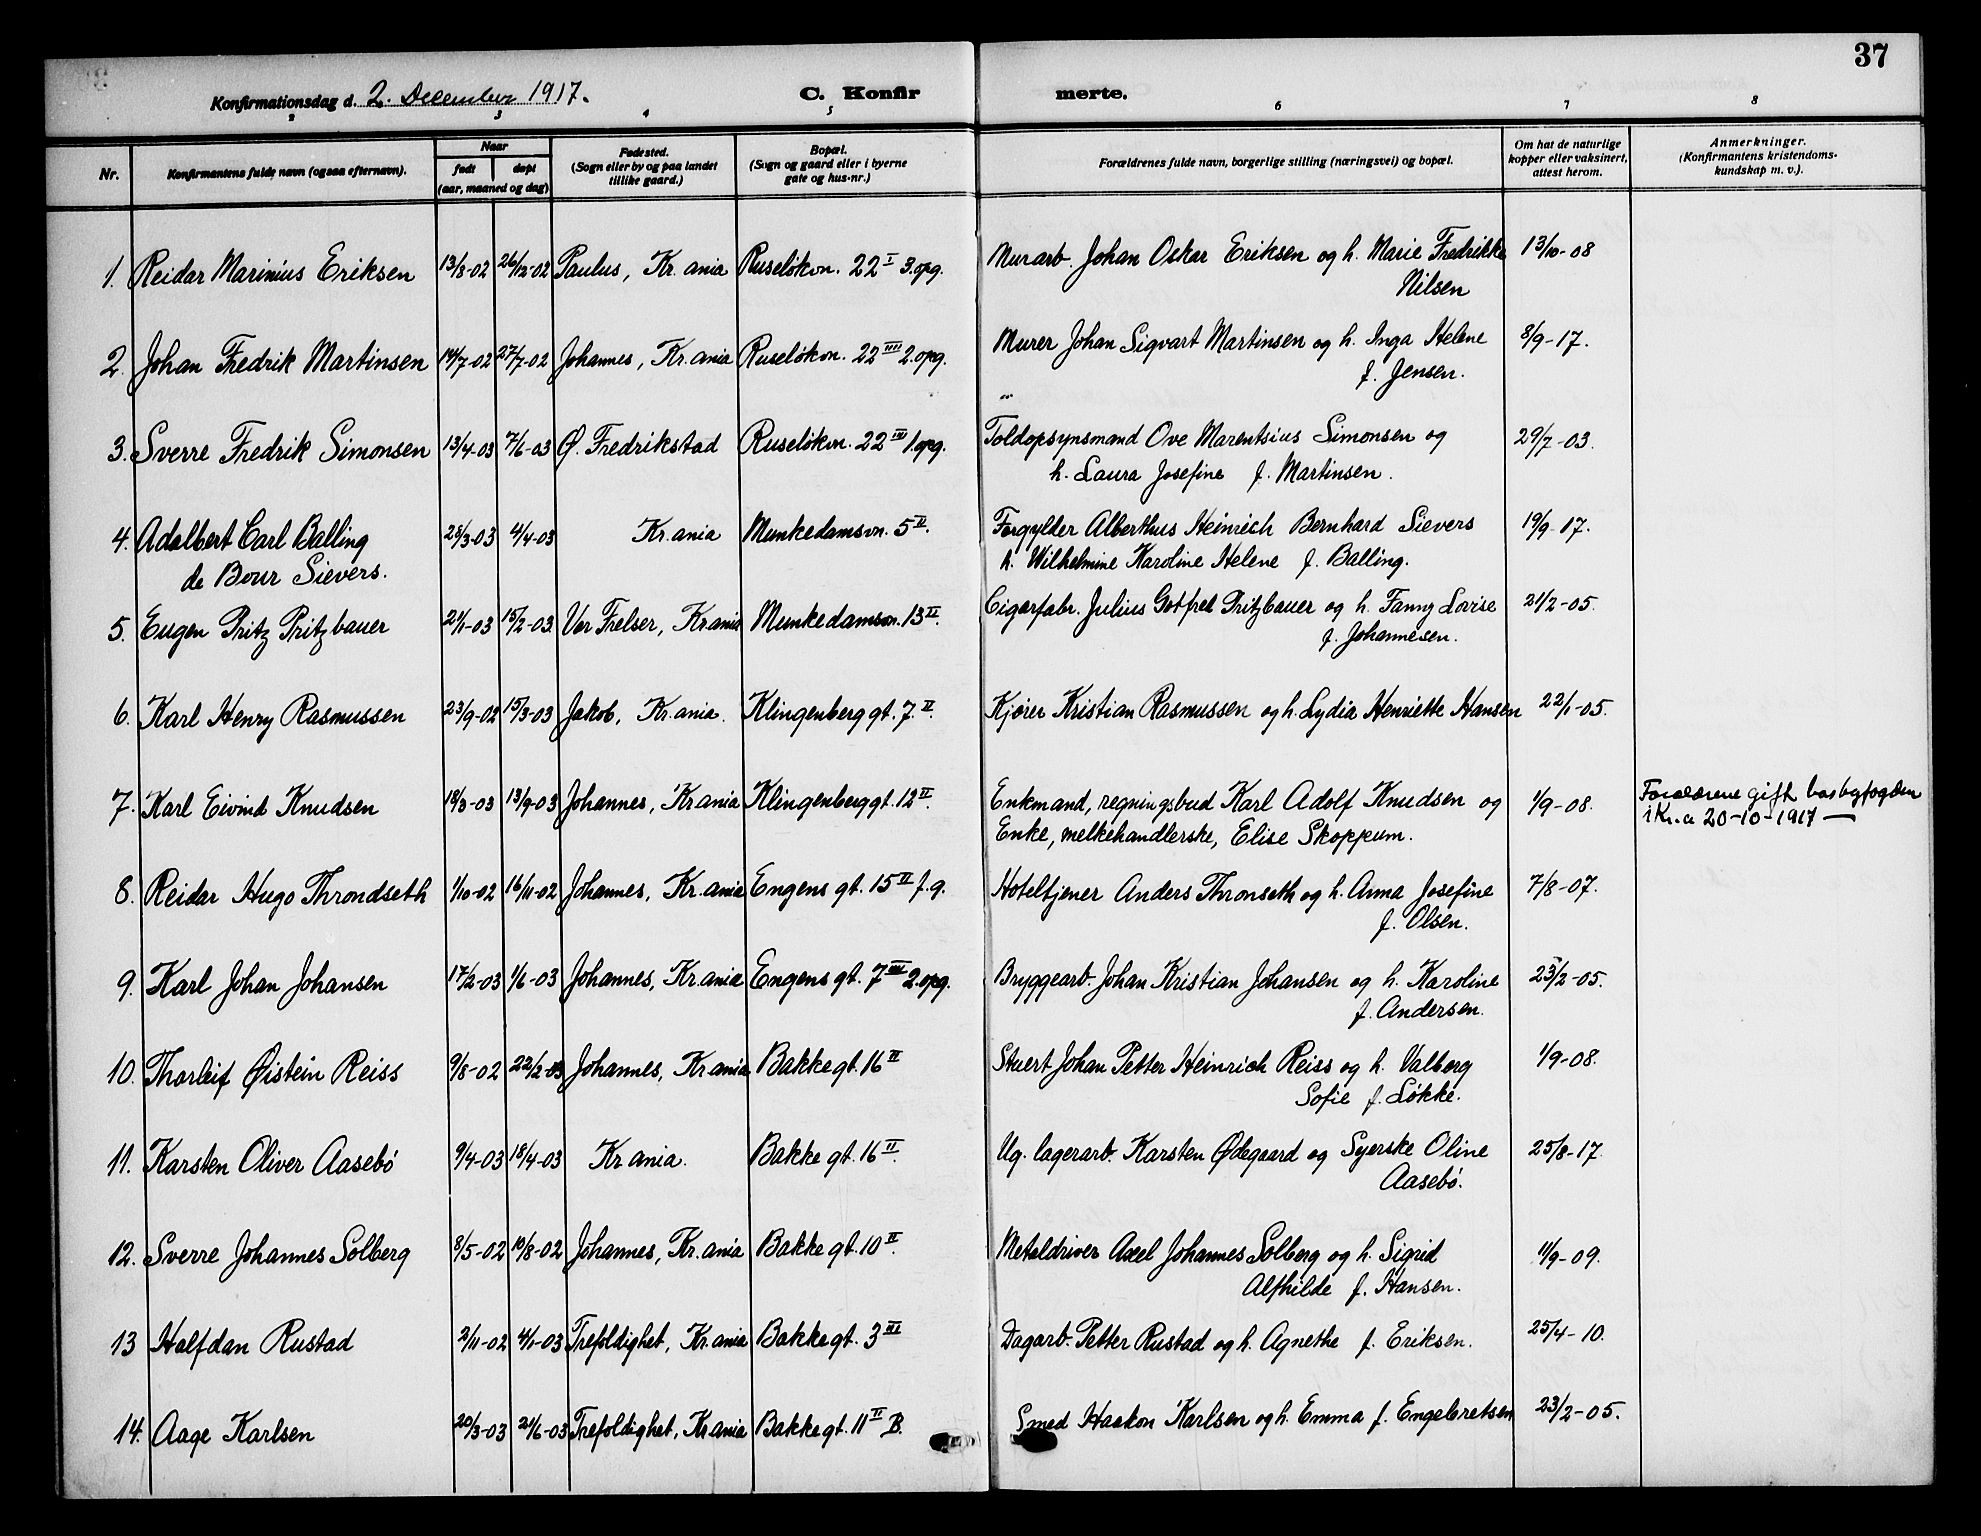 37
Konfirmationsdag d. 2. December 1917.
C. Konfir merte.
2 3 4 5 6 7 8
Nr.
Konfirmantens fulde navn (ogsaa efternavn).
Naar
født døpt
(aar, maaned og dag)
Fødested.
(Sogn eller by og paa landet
tillike gaard.)
Bopæl.
(Sogn og gaard eller i byerne
gate og hus-nr.)
Forældrenes fulde navn, borgerlige stilling (næringsvei) og bopæl.
Om hat de naturlige
kopper eller vaksinert,
attest herom.
Anmerkninger.
(Konfirmantens kristendoms-
kundskap m. v.).
1. Reidar Marinius Eriksen 13/8-02 26/12-02 Paulus, Kr.ania Ruseløkvn. 22 I 3.opg. Murarb. Johan Oskar Eriksen og h. Marie Fredrikke 13/10-08
Nilsen
2. Johan Fredrik Martinsen 14/7-02 27/7-02 Johannes, Kr.ania Ruseløkvn. 22 IIII 2.opg. Murer Johan Sigvart Martinsen og h. Inga Helene 8/9-17.
f. Jensen.
3. Sverre Fredrik Simonsen 13/4-03 7/6-03 Ø. Fredrikstad Ruseløkvn. 22 III 1.opg. Toldopsynsmand Ove Marentsius Simonsen og 29/7-03.
h. Laura Josefine f. Martinsen.
4. Adalbert Carl Balling 28/3-03 4/4-03 Kr.ania Munkedamsvn. 5 II. Forgylder Alberthus Heinrich Bernhard Sievers 19/9-17.
de Bour Sievers. h. Wilhelmine Karoline Helene f. Balling.
5. Eugen Pritz Pritzbauer 21/1-03 15/2-03 Vor Frelser, Kr.ania Munkedamsvn. 13 II. Cigarfabr. Julius Gotfred Pritzbauer og h. Fanny Lovise 21/2-05.
f. Johannesen.
6. Karl Henry Rasmussen 23/9-02 15/3-03 Jakob, Kr.ania. Klingenberggt. 7. II. Kjører Kristian Rasmussen og h. Lydia Henriette Hansen 22/1-05.
7. Karl Eivind Knudsen 18/3-03 13/9-03 Johannes, Kr.ania Klingenberggt. 12 II. Enkmand, regningsbud Karl Adolf Knudsen og 1/9-08. Forældrene gift hos byfogden
Enke, melkehandlerske, Elise Skoppum. i Kr.a 20-10-1917 —
8. Reidar Hugo Throndseth 1/10-02 16/11-02 Johannes, Kr.ania Engens gt. 15 II f.g. Hoteltjener Anders Thronseth og h. Anna Josefine 7/8-07.
f. Olsen.
9. Karl Johan Johansen 17/2-03 1/6-03 Johannes, Kr.ania Engens gt. 7 III 2.opg. Bryggearb. Johan Kristian Johansen og h. Karoline 23/2-05.
f. Andersen.
10. Thorleif Øistein Reiss 9/8-02 22/2-03 Johannes, Kr.ania Bakkegt. 16 II Stuert Johan Petter Heinrich Reiss og h. Valborg 1/9-08.
Sofie f. Løkke.
11. Karsten Oliver Aasebø 9/4-03 18/4-03 Kr.ania. Bakke gt. 16 II. Ug. lagerarb. Karsten Ødegaard og Syerske Oline 25/8-17.
Aasebø.
12. Sverre Johannes Solberg 8/5-02 10/8-02 Johannes, Kr.ania Bakke gt. 10 II. Metaldriver Axel Johannes Solberg og h. Sigrid 11/9-09.
Alfhilde f. Hansen.
13 Halfdan Rustad 2/11-02 4/1-03 Trefoldighet, Kr.ania Bakkegt. 3 III Dagarb. Petter Rustad og h. Agnethe f. Eriksen. 25/4-10.
14. Aage Karlsen 20/3-03 21/6-03 Trefoldighet, Kr.ania Bakkegt. 11 II B. Smed Haakon Karlsen og h. Emma f. Engebretsen 23/2-05.